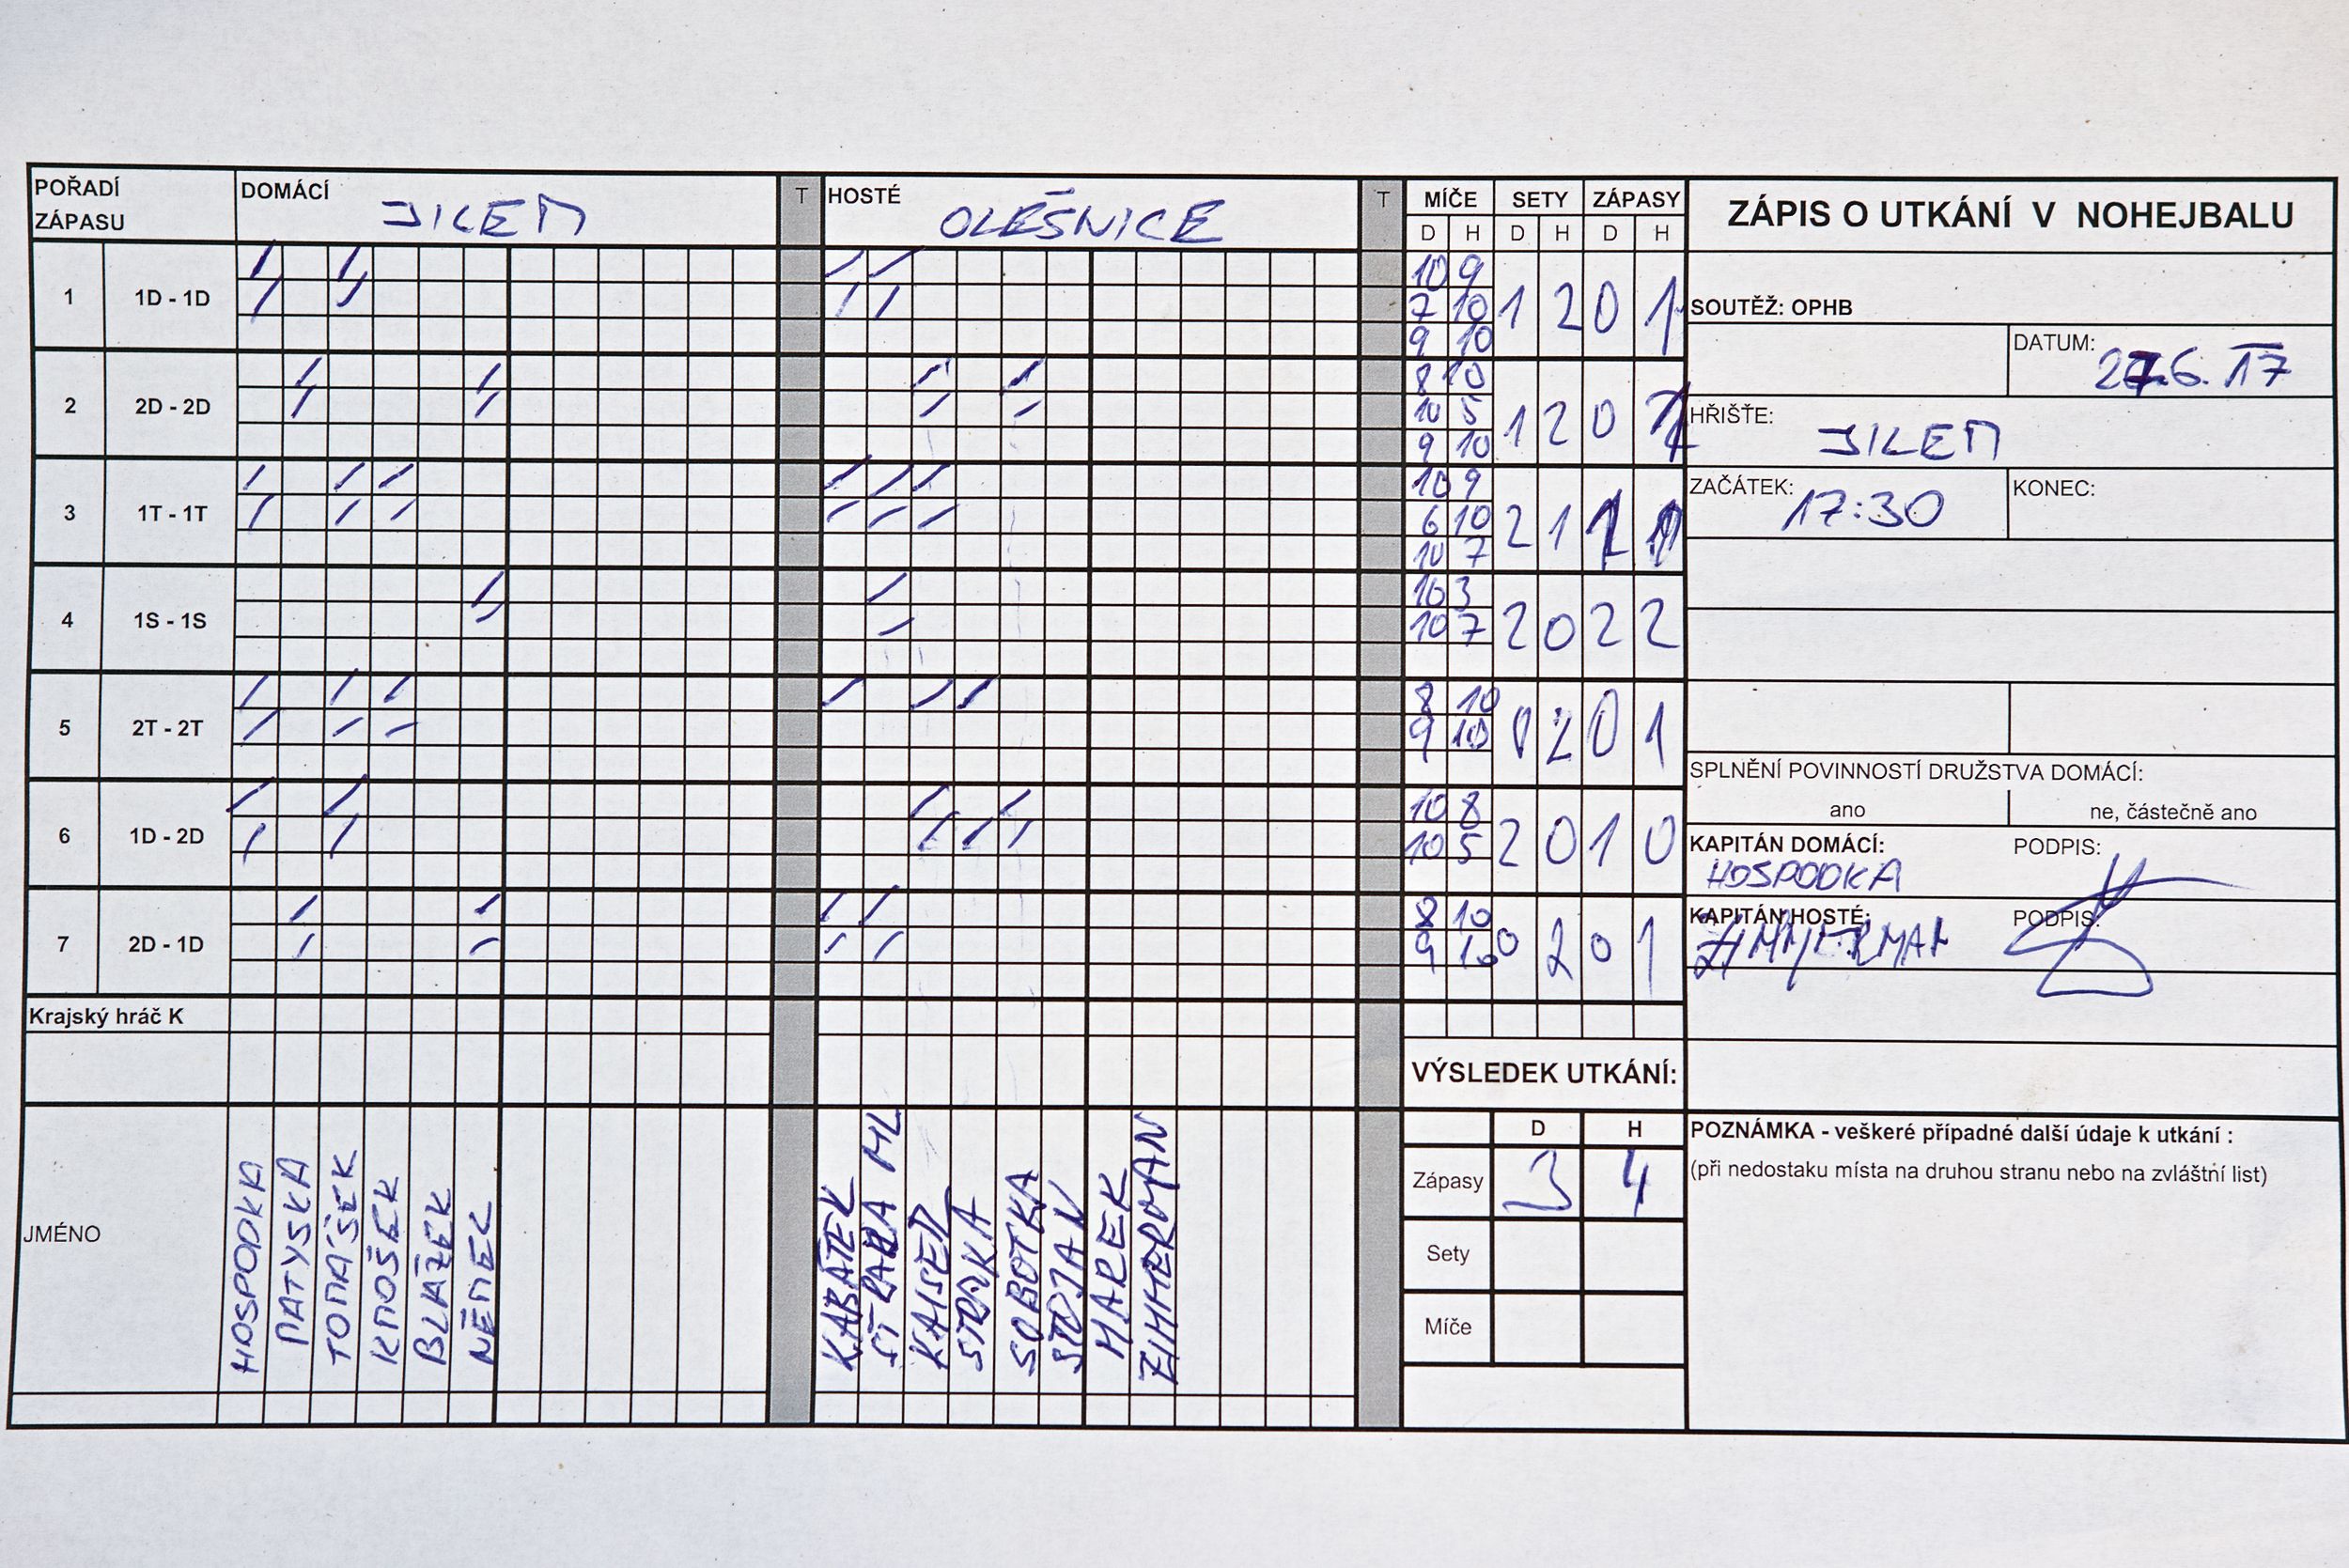 POŘADÍ ZÁPASU DOMÁCÍ JILEM T HOSTÉ OLEŠNICE T MÍČE SETY ZÁPASY
D H D H D H
ZÁPIS O UTKÁNÍ V NOHEJBALU
1 1D - 1D
10 9
7 10
9 10
1 2 0 1
2 2D - 2D
8 10
10 5
9 10
1 2 0
3 1T - 1T
10 9
6 10
10 7
2 1 1
4 1S - 1S
10 3
10 7
2 0 2 2
5 2T - 2T
8 10
9 10
0 2 0 1
6 1D - 2D
10 8
10 5
2 0 1 0
7 2D - 1D
8 10
9 10
0 2 0 1
Krajský hráč K
SOUTĚŽ: OPHB
DATUM: 27.6. 17
HŘIŠTĚ: JILEM
ZAČÁTEK: 17:30 KONEC:
SPLNĚNÍ POVINNOSTÍ DRUŽSTVA DOMÁCÍ:
ano ne, částečně ano
KAPITÁN DOMÁCÍ: PODPIS:
HOSPODKA
KAPITÁN HOSTÉ: PODPIS:
ZIMMERMAN
VÝSLEDEK UTKÁNÍ:
D H
Zápasy 3 4
Sety
Míče
POZNÁMKA - veškeré případné další údaje k utkání :
(při nedostaku místa na druhou stranu nebo na zvláštní list)
JMÉNO
HOSPODKA
MATYSKA
TOMÁŠEK
KMOŠEK
BLAŽEK
NĚMEC
KABÁTEK
ML
KAISER
SOBOTKA
STOJAN
MAREK
ZIMMERMAN